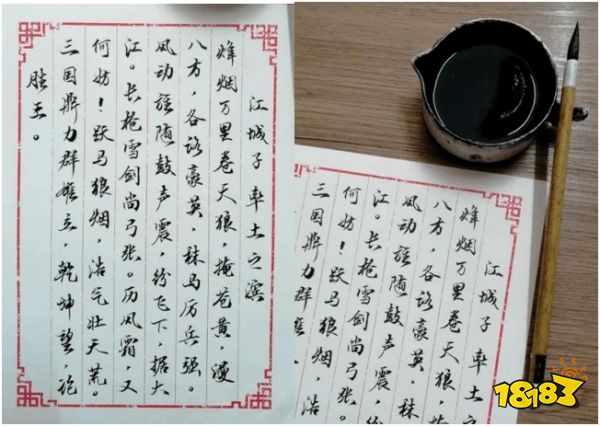 江城子 率土之滨
烽烟万里卷天狼，掩苍黄，漫
八方，各路豪英，秣马厉兵强。
风动旌随鼓声震，纷飞下，据大
江。长枪雪剑尚弓张。历风霜，又
何妨！跃马狼烟，浩气壮天荒。
三国鼎力群雄立，乾坤望，孰
胜王。
江城子 率土之滨
烽烟万里卷天狼，掩
八方，各路豪英，秣
风动旌随鼓声震，纷
江。长枪雪剑尚弓张。
何妨！跃马狼烟，浩
三国鼎力群雄
18183